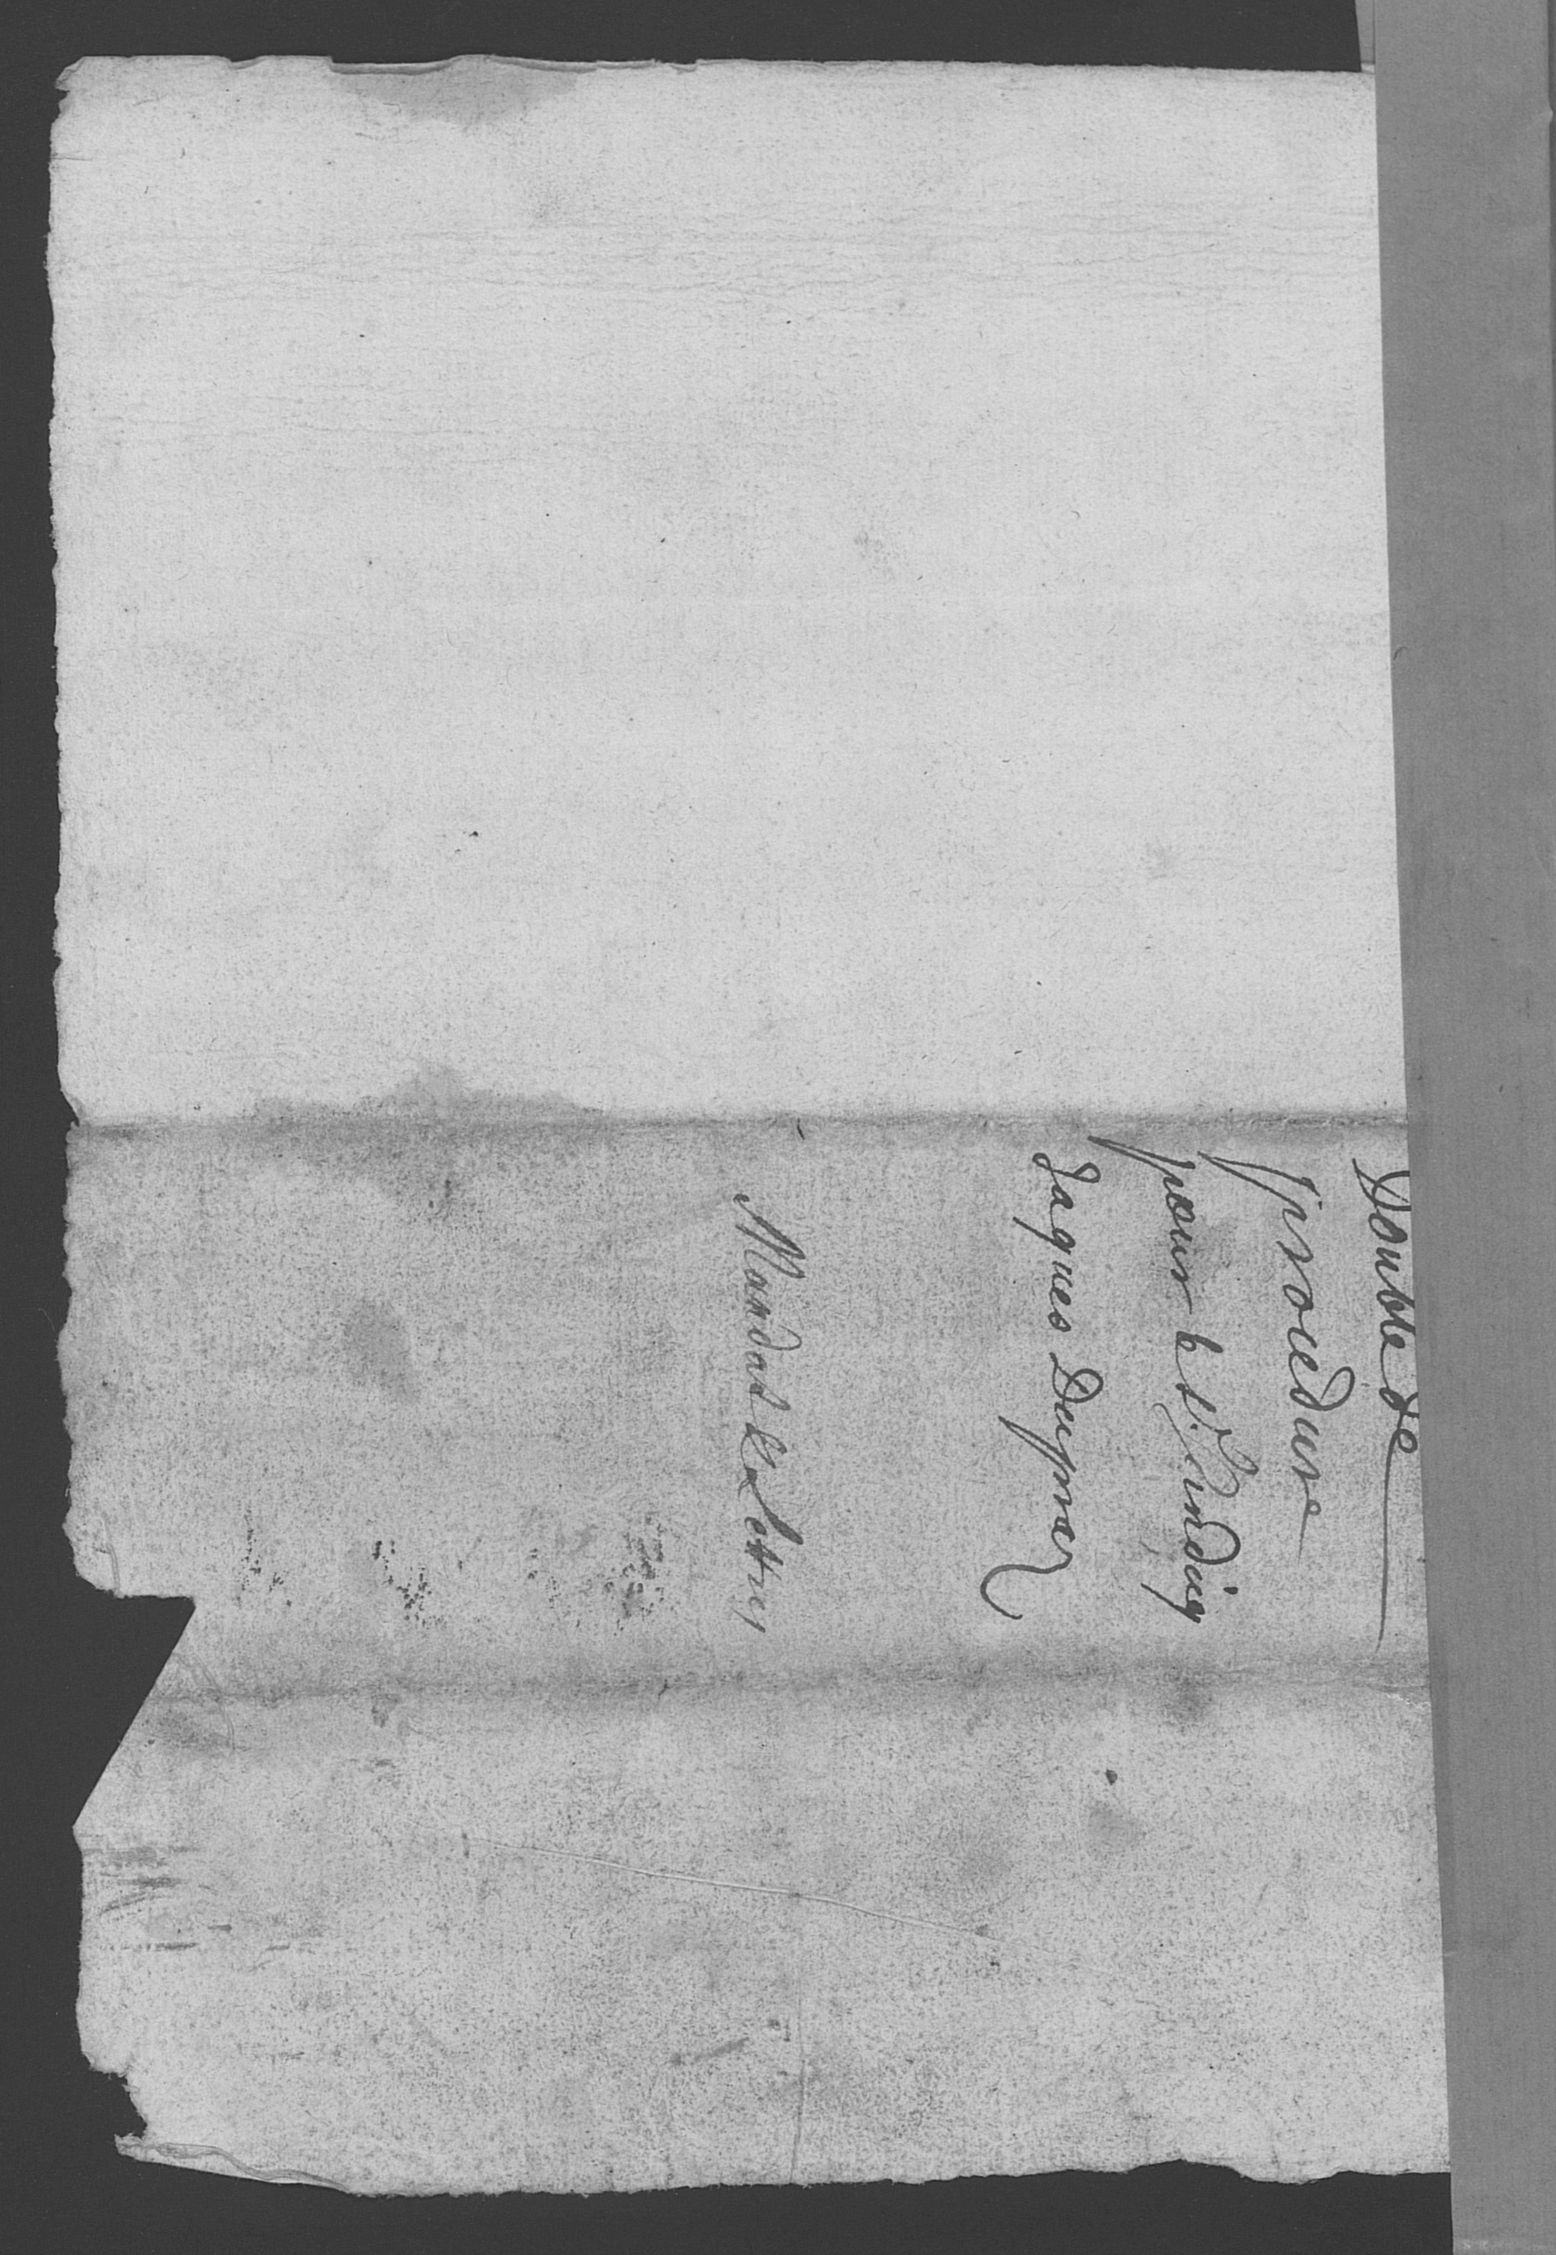 Double de
procedure
pour le Sr. Sindiq
Jaques Duprar
Mandat de Lettres